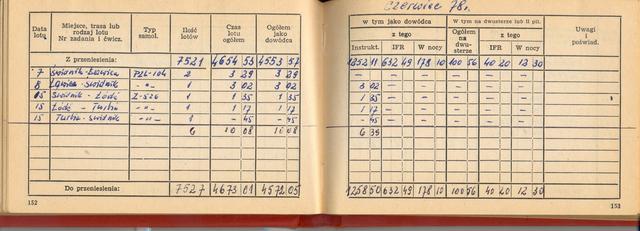 Czerwiec 78r.
Data lotu | Miejsce, trasa lub rodzaj lotu Nr zadania i ćwicz. | Typ samol. | Ilość lotów | Czas lotu ogółem | Ogółem jako dowódca | w tym jako dowódca | w tym na dwusterze lub II pil. | Uwagi i poświad.
z tego | Ogółem na dwusterze | z tego
Instrukt. | IFR | W nocy | IFR | W nocy
Z przeniesienia: 7521 4654 53 4553 57 1252 11 632 49 178 10 100 56 40 20 12 30
7 Świdnik-Ławica PZL-104 2 3 29 3 29 – – – – – – –
8 Ławica-Świdnik -"- 1 3 02 3 02 3 02 – – – – –
15 Świdnik - Łódź Z-526 1 1 35 1 35 1 35 – – – – –
15 Łódź - Turbia -"- 1 1 17 1 17 1 17 – – – – –
15 Turbia-Świdnik -"- 1 -45 -45 -45 – – – – –
6 10 08 10 08 6 39
Do przeniesienia: 7527 4673 01 4572 05 1258 50 632 49 178 10 100 56 40 20 12 30
152
153